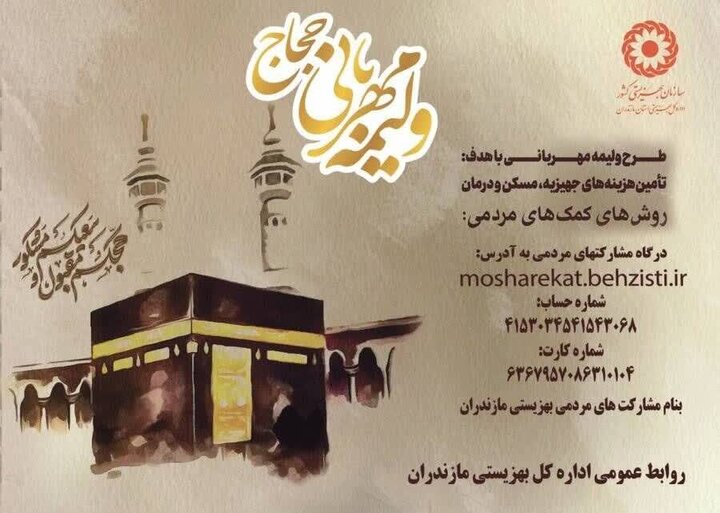 ولیمه مهربانی حجاج
سازمان بهزیستی کشور
اداره کل بهزیستی استان مازندران
طرح ولیمه مهربانی با هدف:
تأمین هزینه‌های جهیزیه، مسکن و درمان
روش‌های کمک‌های مردمی:
درگاه مشارکتهای مردمی به آدرس:
mosharekat.behzisti.ir
شماره حساب:
۴۱۵۳۰۳۴۵۴۱۵۴۳۰۶۸
شماره کارت:
۶۳۶۷۹۵۷۰۸۶۳۱۰۱۰۴
بنام مشارکت های مردمی بهزیستی مازندران
حجکم مقبول و
سعیکم مشکور
روابط عمومی اداره کل بهزیستی مازندران